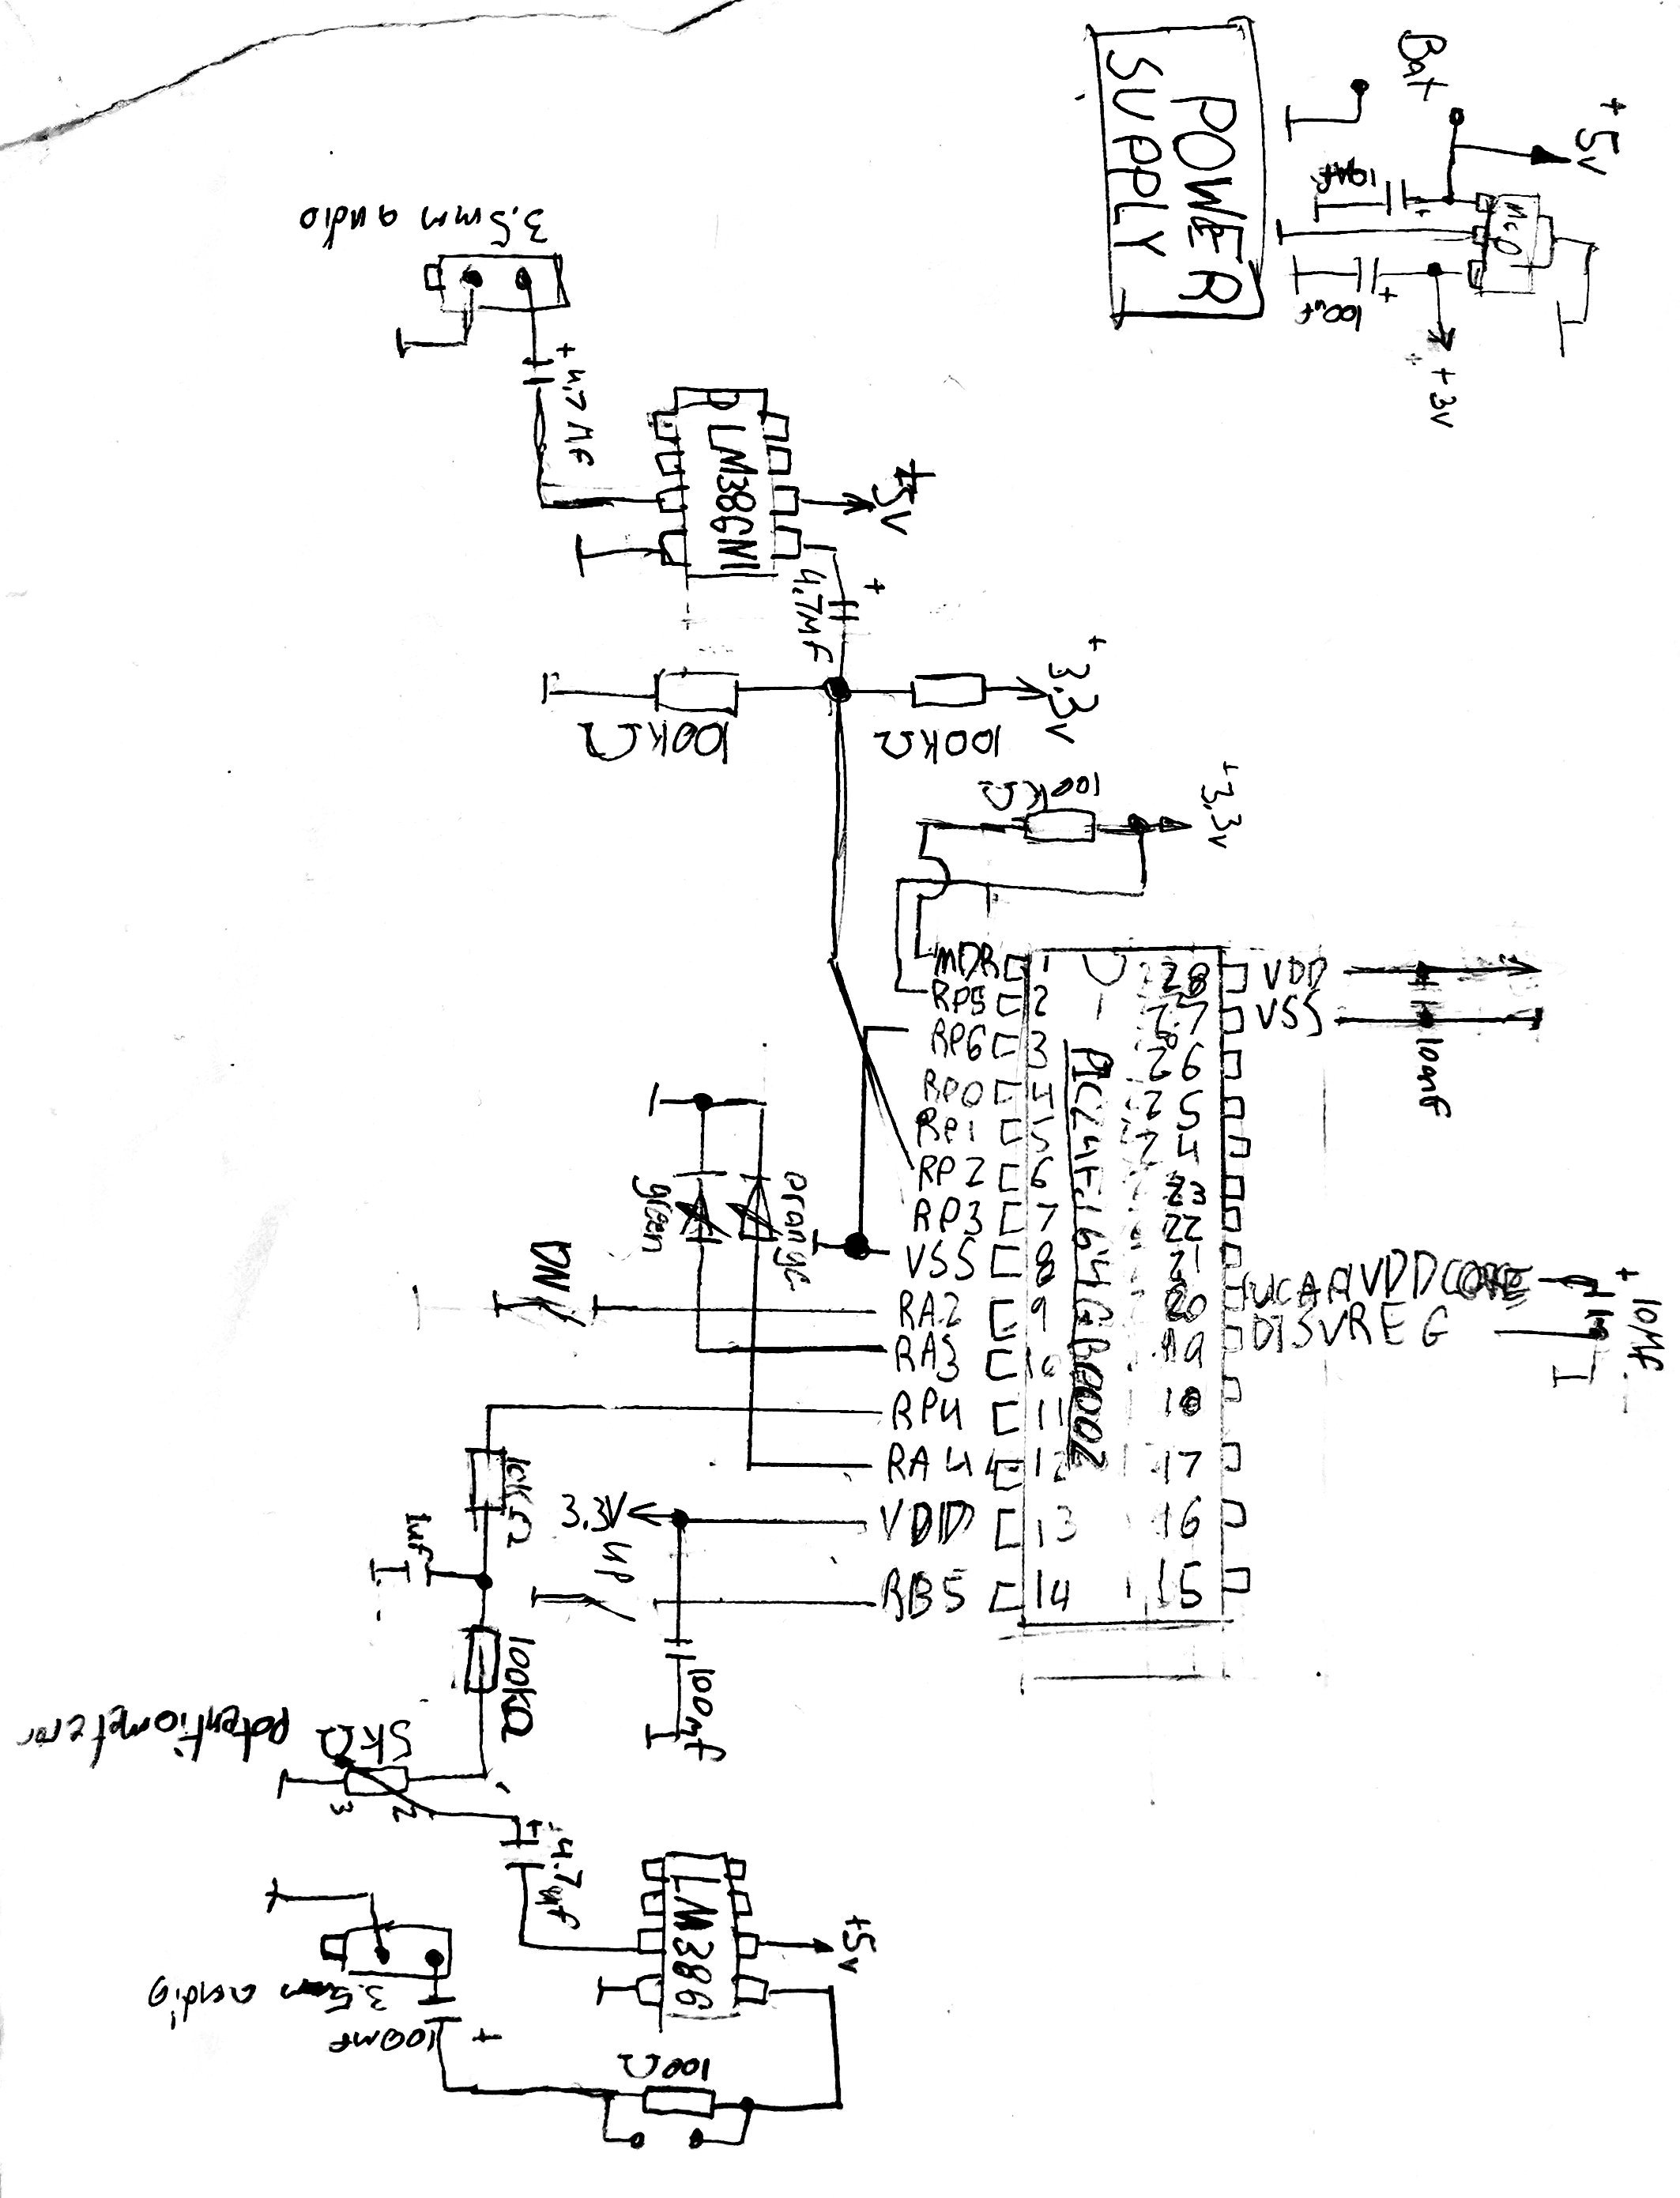 Bat
+5V
100uF
+
+3V
POWER
SUPPLY
3.5mm audio
+
4,7MF
LM386N1
+5V
+
4,7MF
+3.3V
100KΩ
100KΩ
100KΩ
+3.3V
PIC24FJ64GB002
MDR 1
RP5 2
RP6 3
RP0 4
RP1 5
RP2 6
RP3 7
VSS 8
RA2 9
RA3 10
RP4 11
RA4 12
VDD 13
RB5 14
28 VDD
27 VSS
26
25
24
23
22
21
20
19 DISVREG
18
17
16
15
100nF
+
10MF
green
orange
DN
10KΩ
1uF
3.3V
UP
100KΩ
100mF
5KΩ
potentiometeror
3
2
+
4.7uF
LM386
+5V
3.5mm audio
100MF
+
100Ω